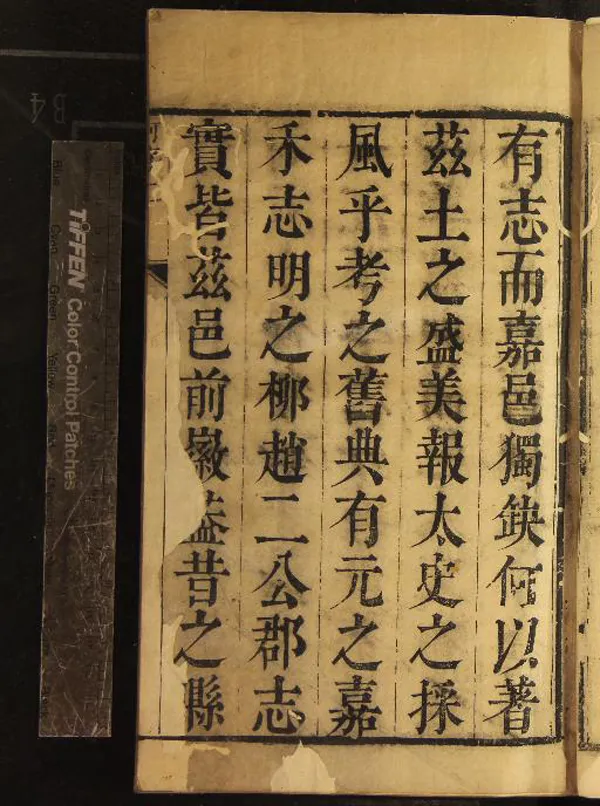 有志而嘉邑獨缺何以著
茲土之盛美報太史之採
風乎考之舊典有元之嘉
禾志明之柳趙二公郡志
實皆茲邑前徽蓋昔之縣
TIFFEN Color Control Patches
Blue
Cyan
Green
Yellow
B4